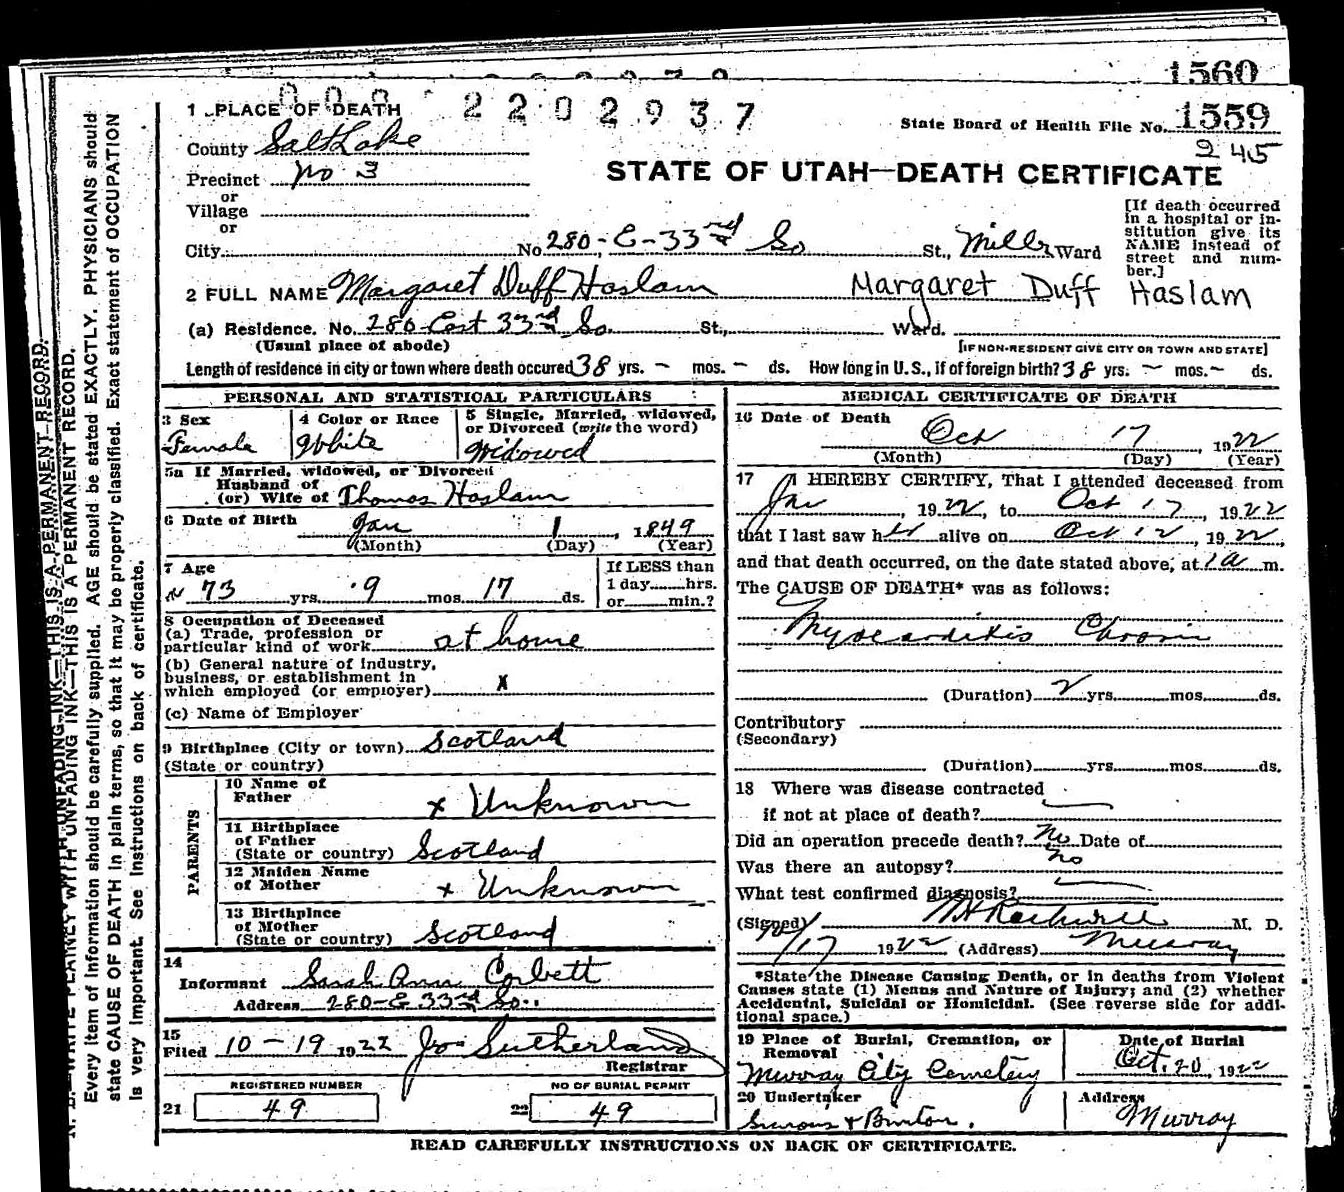 1560
1 PLACE OF DEATH
2202937
State Board of Health File No. 1559
245
County Salt Lake
Precinct No 3
or
Village
or
City No. 280-E-33rd So St., Miller Ward
STATE OF UTAH—DEATH CERTIFICATE
[If death occurred
in a hospital or in-
stitution give its
NAME instead of
street and num-
ber.]
2 FULL NAME Margaret Duff Haslam Margaret Duff Haslam
(a) Residence. No. 280 East 33rd So. St., Ward.
(Usual place of abode) [IF NON-RESIDENT GIVE CITY OR TOWN AND STATE]
Length of residence in city or town where death occured 38 yrs. — mos. — ds. How long in U. S., if of foreign birth? 38 yrs. — mos. — ds.
PERSONAL AND STATISTICAL PARTICULARS
3 Sex
Female
4 Color or Race
White
5 Single, Married, widowed,
or Divorced (write the word)
Widowed
5a If Married, widowed, or Divorced
Husband of
(or) Wife of Thomas Haslam
6 Date of Birth Jan 1, 1849
(Month) (Day) (Year)
7 Age
73 yrs. 9 mos. 17 ds.
If LESS than
1 day hrs.
or min.?
8 Occupation of Deceased
(a) Trade, profession or
particular kind of work at home
(b) General nature of industry,
business, or establishment in
which employed (or employer) X
(c) Name of Employer
9 Birthplace (City or town) Scotland
(State or country)
PARENTS
10 Name of
Father x Unknown
11 Birthplace
of Father
(State or country) Scotland
12 Maiden Name
of Mother x Unknown
13 Birthplace
of Mother
(State or country) Scotland
14
Informant Sarah Ann Corbett
Address 280-E 33rd So.
15
Filed 10-19 1922 Jos Sutherland
Registrar
REGISTERED NUMBER
21 49
NO OF BURIAL PERMIT
22 49
MEDICAL CERTIFICATE OF DEATH
16 Date of Death
Oct 17 1922
(Month) (Day) (Year)
17 I HEREBY CERTIFY, That I attended deceased from
Jan, 1922, to Oct 17, 1922
that I last saw her alive on Oct 12, 1922,
and that death occurred, on the date stated above, at 1 a m.
The CAUSE OF DEATH* was as follows:
Myocarditis Chronic
(Duration) 2 yrs. mos. ds.
Contributory
(Secondary)
(Duration) yrs. mos. ds.
18 Where was disease contracted
if not at place of death? —
Did an operation precede death? No Date of
Was there an autopsy? no
What test confirmed diagnosis? —
(Signed) Rothwell M. D.
10/17 1922 (Address) Murray
*State the Disease Causing Death, or in deaths from Violent
Causes state (1) Means and Nature of Injury; and (2) whether
Accidental, Suicidal or Homicidal. (See reverse side for addi-
tional space.)
19 Place of Burial, Cremation, or
Removal
Murray City Cemetery
Date of Burial
Oct. 20, 1922
20 Undertaker
Address
Murray
READ CAREFULLY INSTRUCTIONS ON BACK OF CERTIFICATE.
N. B.—WRITE PLAINLY WITH UNFADING INK—THIS IS A PERMANENT RECORD.
Every item of information should be carefully supplied. AGE should be stated EXACTLY. PHYSICIANS should
state CAUSE OF DEATH in plain terms, so that it may be properly classified. Exact statement of OCCUPATION
is very important. See instructions on back of certificate.